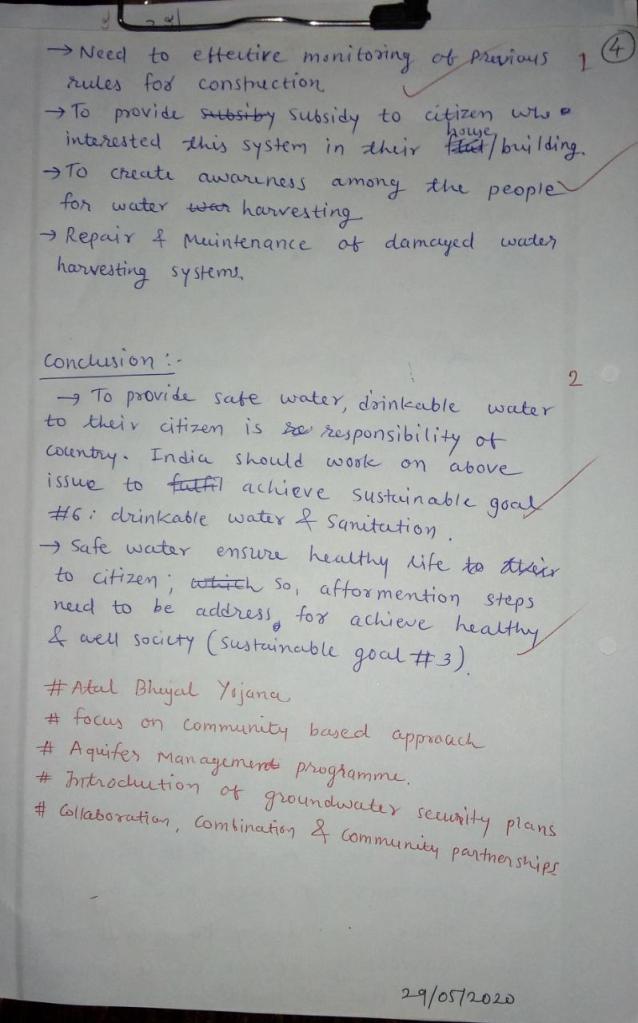 4
→ Need to effective monitoring of previous 1
rules for construction
→ To provide subsiby subsidy to citizen who
house
interested this system in their flat/building.
→ To create awareness among the people
for water war harvesting
→ Repair & Muintenance of damayed water
harvesting systems.
Conclusion :-
2
→ To provide safe water, drinkable water
to their citizen is re responsibility of
country. India should work on above
issue to fulfil achieve sustainable goal
#6: drinkable water & Sanitation.
→ Safe water ensure healthy life to their
to citizen; which so, afformention steps
need to be address, for achieve healthy
& well society (sustainable goal #3).
# Atal Bhujal Yojana
# focus on community based approach
# Aquifer Management programme.
# Introduction of groundwater security plans
# Collaboration, Combination & Community partnerships
29/05/2020